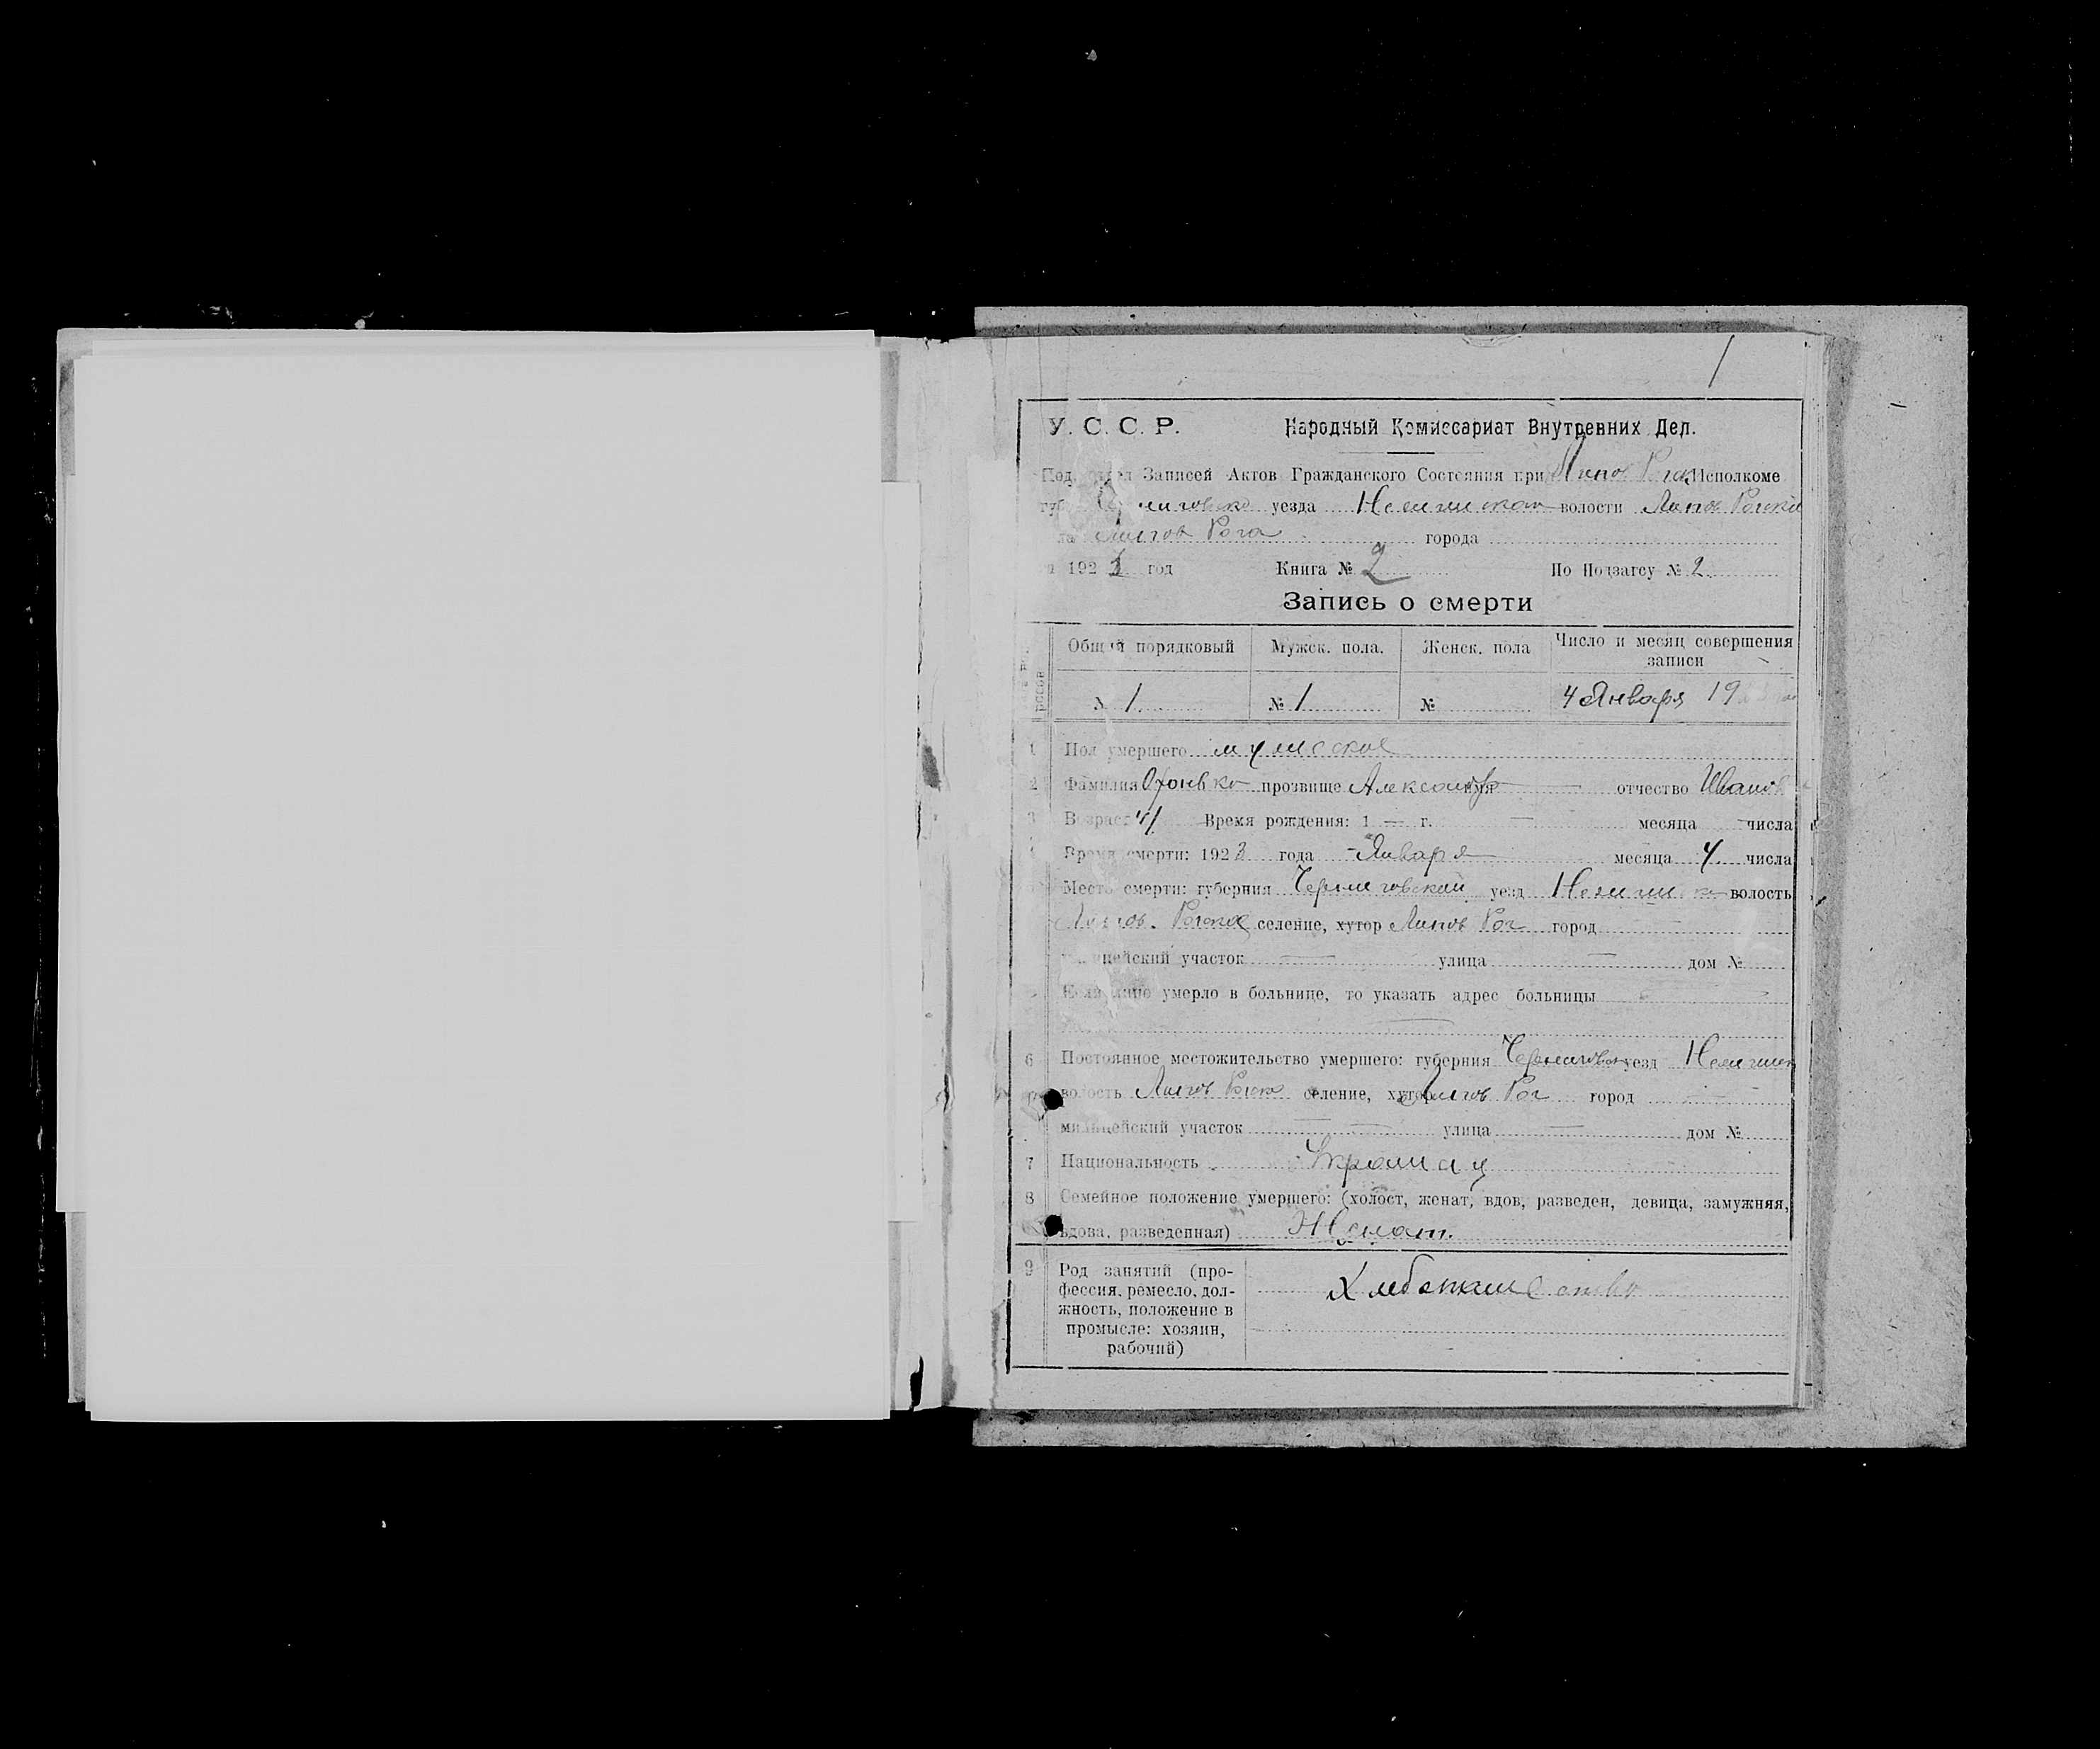 1
У. С. С. Р. Народный Комиссариат Внутренних Дел.
Записей Актов Гражданского Состояния при Липов Исполкоме
уезда волости Липов
Липов Рога города
192 год Книга № 2 По Подзагсу № 2
Запись о смерти
Общий порядковый Мужск. пола. Женск. пола Число и месяц совершения
записи
№ 1 № 1 № 4 Января 19
1 Пол умершего
2 Фамилия прозвище Александр имя отчество Иванов
3 Возраст 41 Время рождения: 1 — г. — месяца — числа
Время смерти: 1923 года — Января — месяца 4 числа
Место смерти: губерния Черниговской уезд волость
Липов. селение, хутор Липов Рог город
милицейский участок — улица — дом №
Если лицо умерло в больнице, то указать адрес больницы
—
6 Постоянное местожительство умершего: губерния уезд
волость Липов селение, хутор Липов Рог город —
милицейский участок — — улица — дом №
7 Национальность
8 Семейное положение умершего: (холост, женат, вдов, разведен, девица, замужняя,
вдова, разведенная) Женат.
9 Род занятий (про-
фессия, ремесло, дол-
жность, положение в
промысле: хозяин,
рабочий)